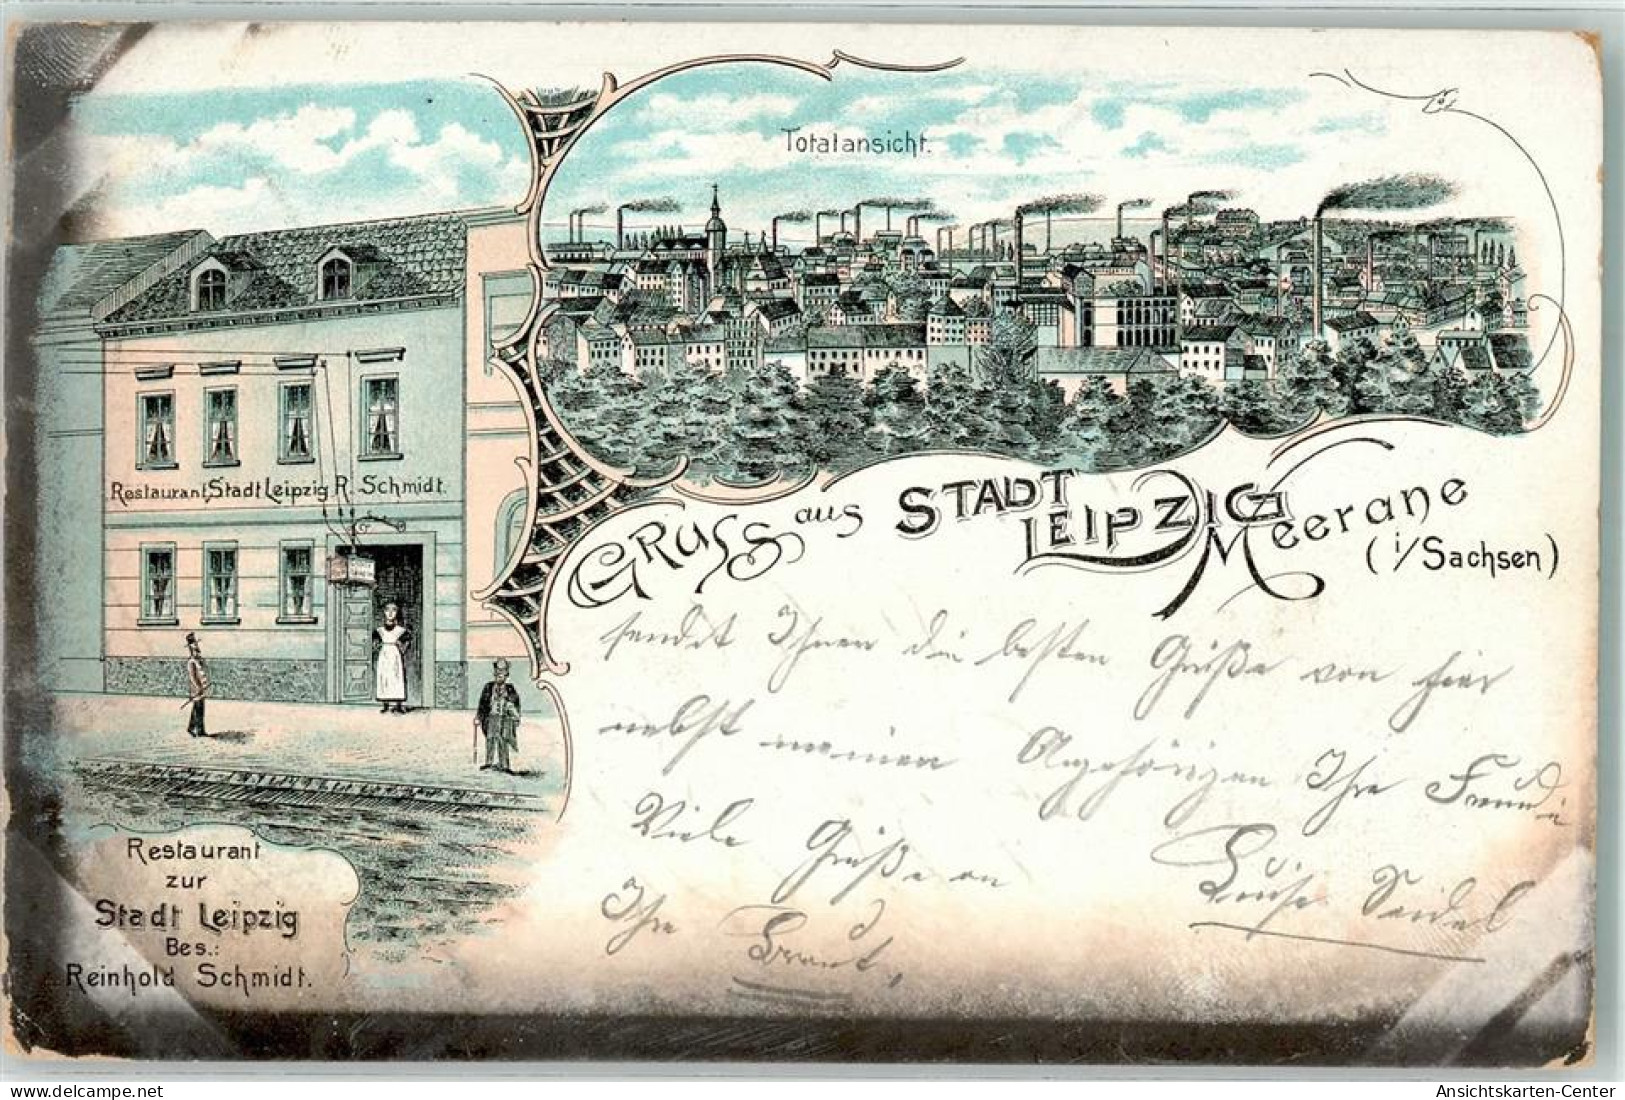 Totalansicht.
Restaurant, Stadt Leipzig R. Schmidt.
Gruss aus Stadt Leipzig Meerane
(i/Sachsen)
sendet Ihnen die besten Grüße von hier
nebst meinen Angehörigen Ihre Freundin
Viele Grüße an Luise Seidel
Ihre Braut,
Restaurant
zur
Stadt Leipzig
Bes.:
Reinhold Schmidt.
Ansichtskarten-Center